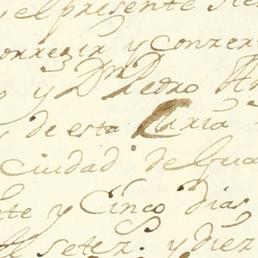 y el presente
correxir y conzer
y Dn Pedro
de esta Curia
ciudad de Gua
te y Cinco dias
setez. y diez